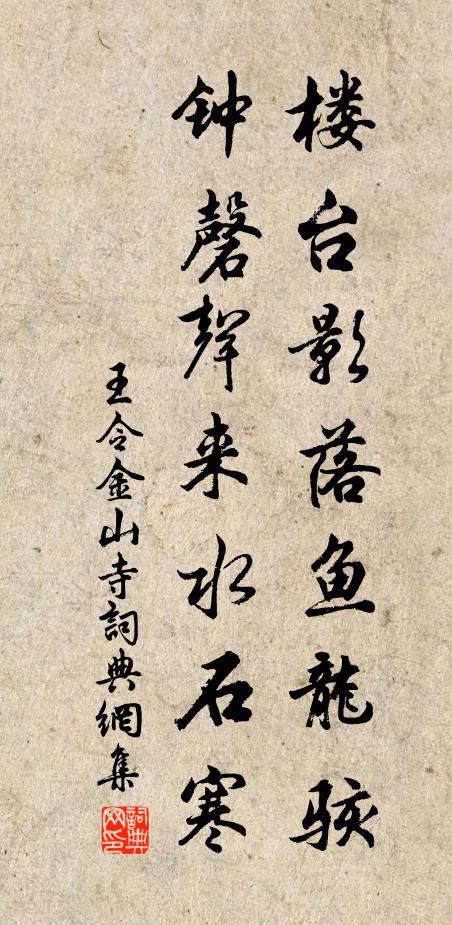 楼台影落鱼龍駭
钟磬聲来水石寒
王令金山寺詞典網集
詞典網印